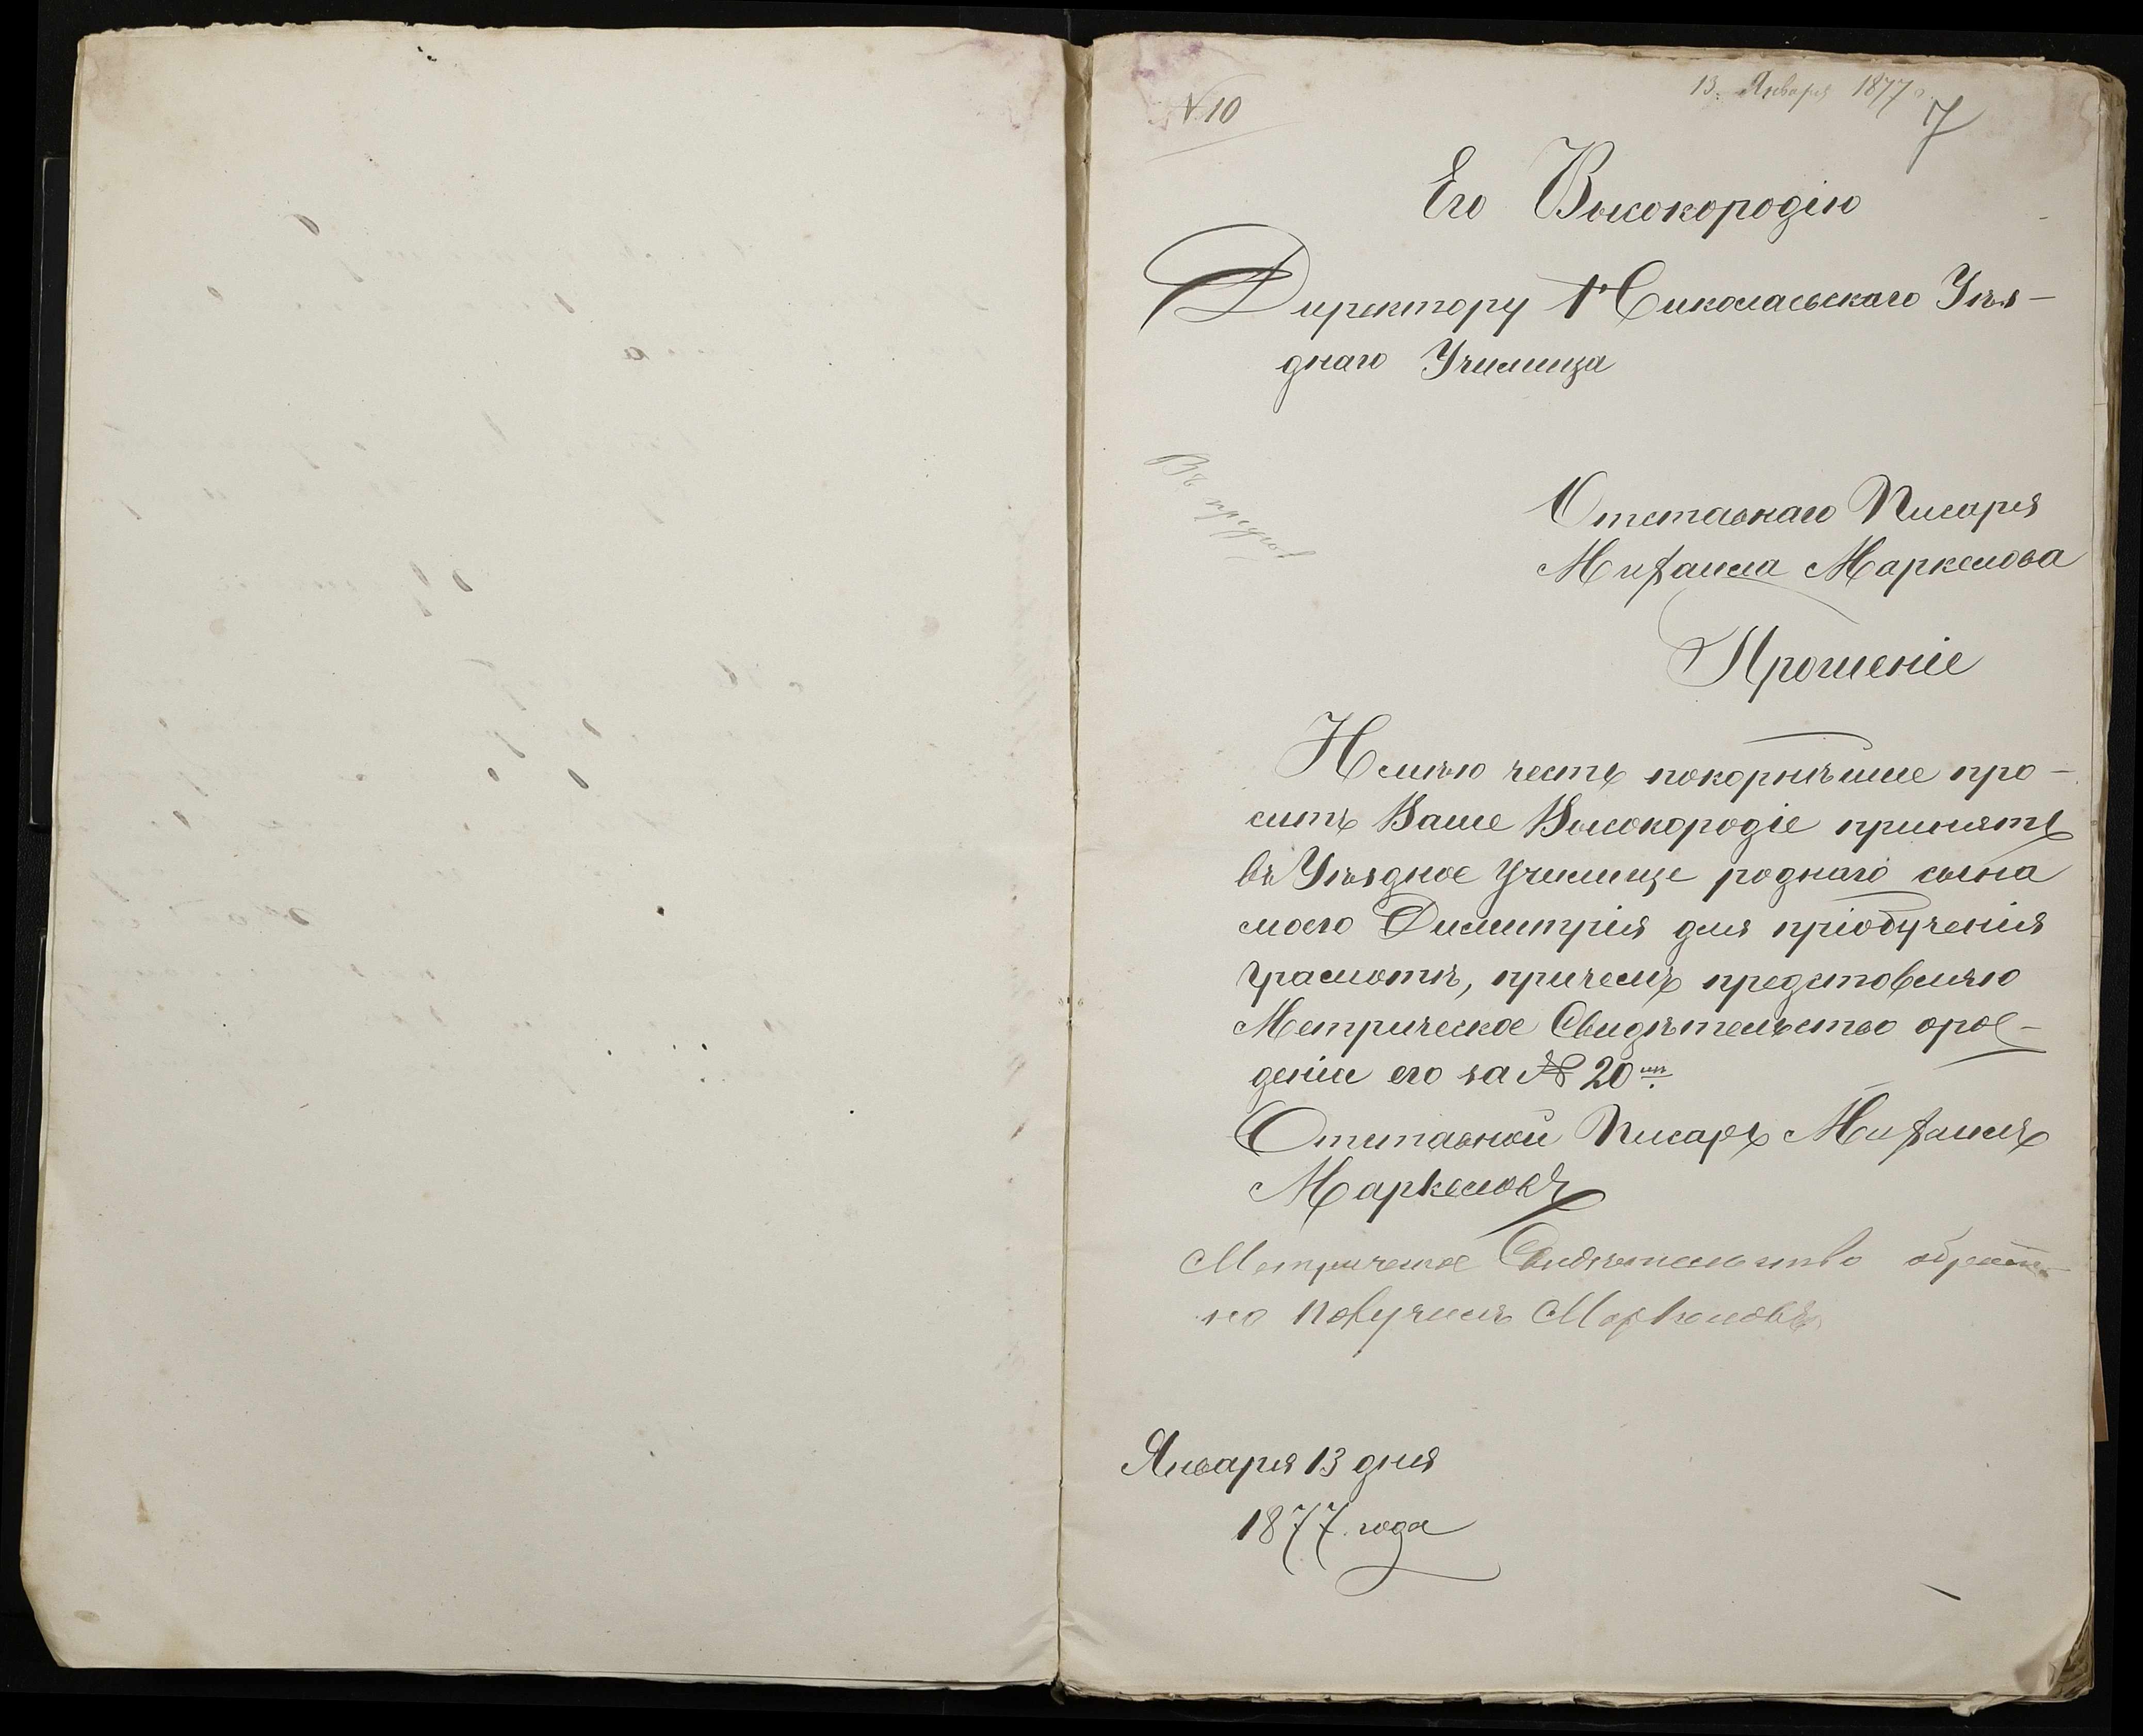 № 10
13. Января 1877 г.
7
Его Высокородію
Директору Николаевскаго Уѣз-
днаго Училища
Отставнаго Писаря
Михаила Маркелова
Прошеніе
Имѣю честь покорнѣйше про-
сить Ваше Высокородіе принять
въ Уѣздное Училище роднаго сына
моего Димитрія для пріобученія
грамотѣ, причемъ представляю
Метрическое Свидѣтельство орож-
деніи его за № 20мъ.
Отставной Писарь Михаилъ
Маркеловъ
Метрическое Свидѣтельство обрат-
но получилъ Маркеловъ
Января 13 дня
1877. года